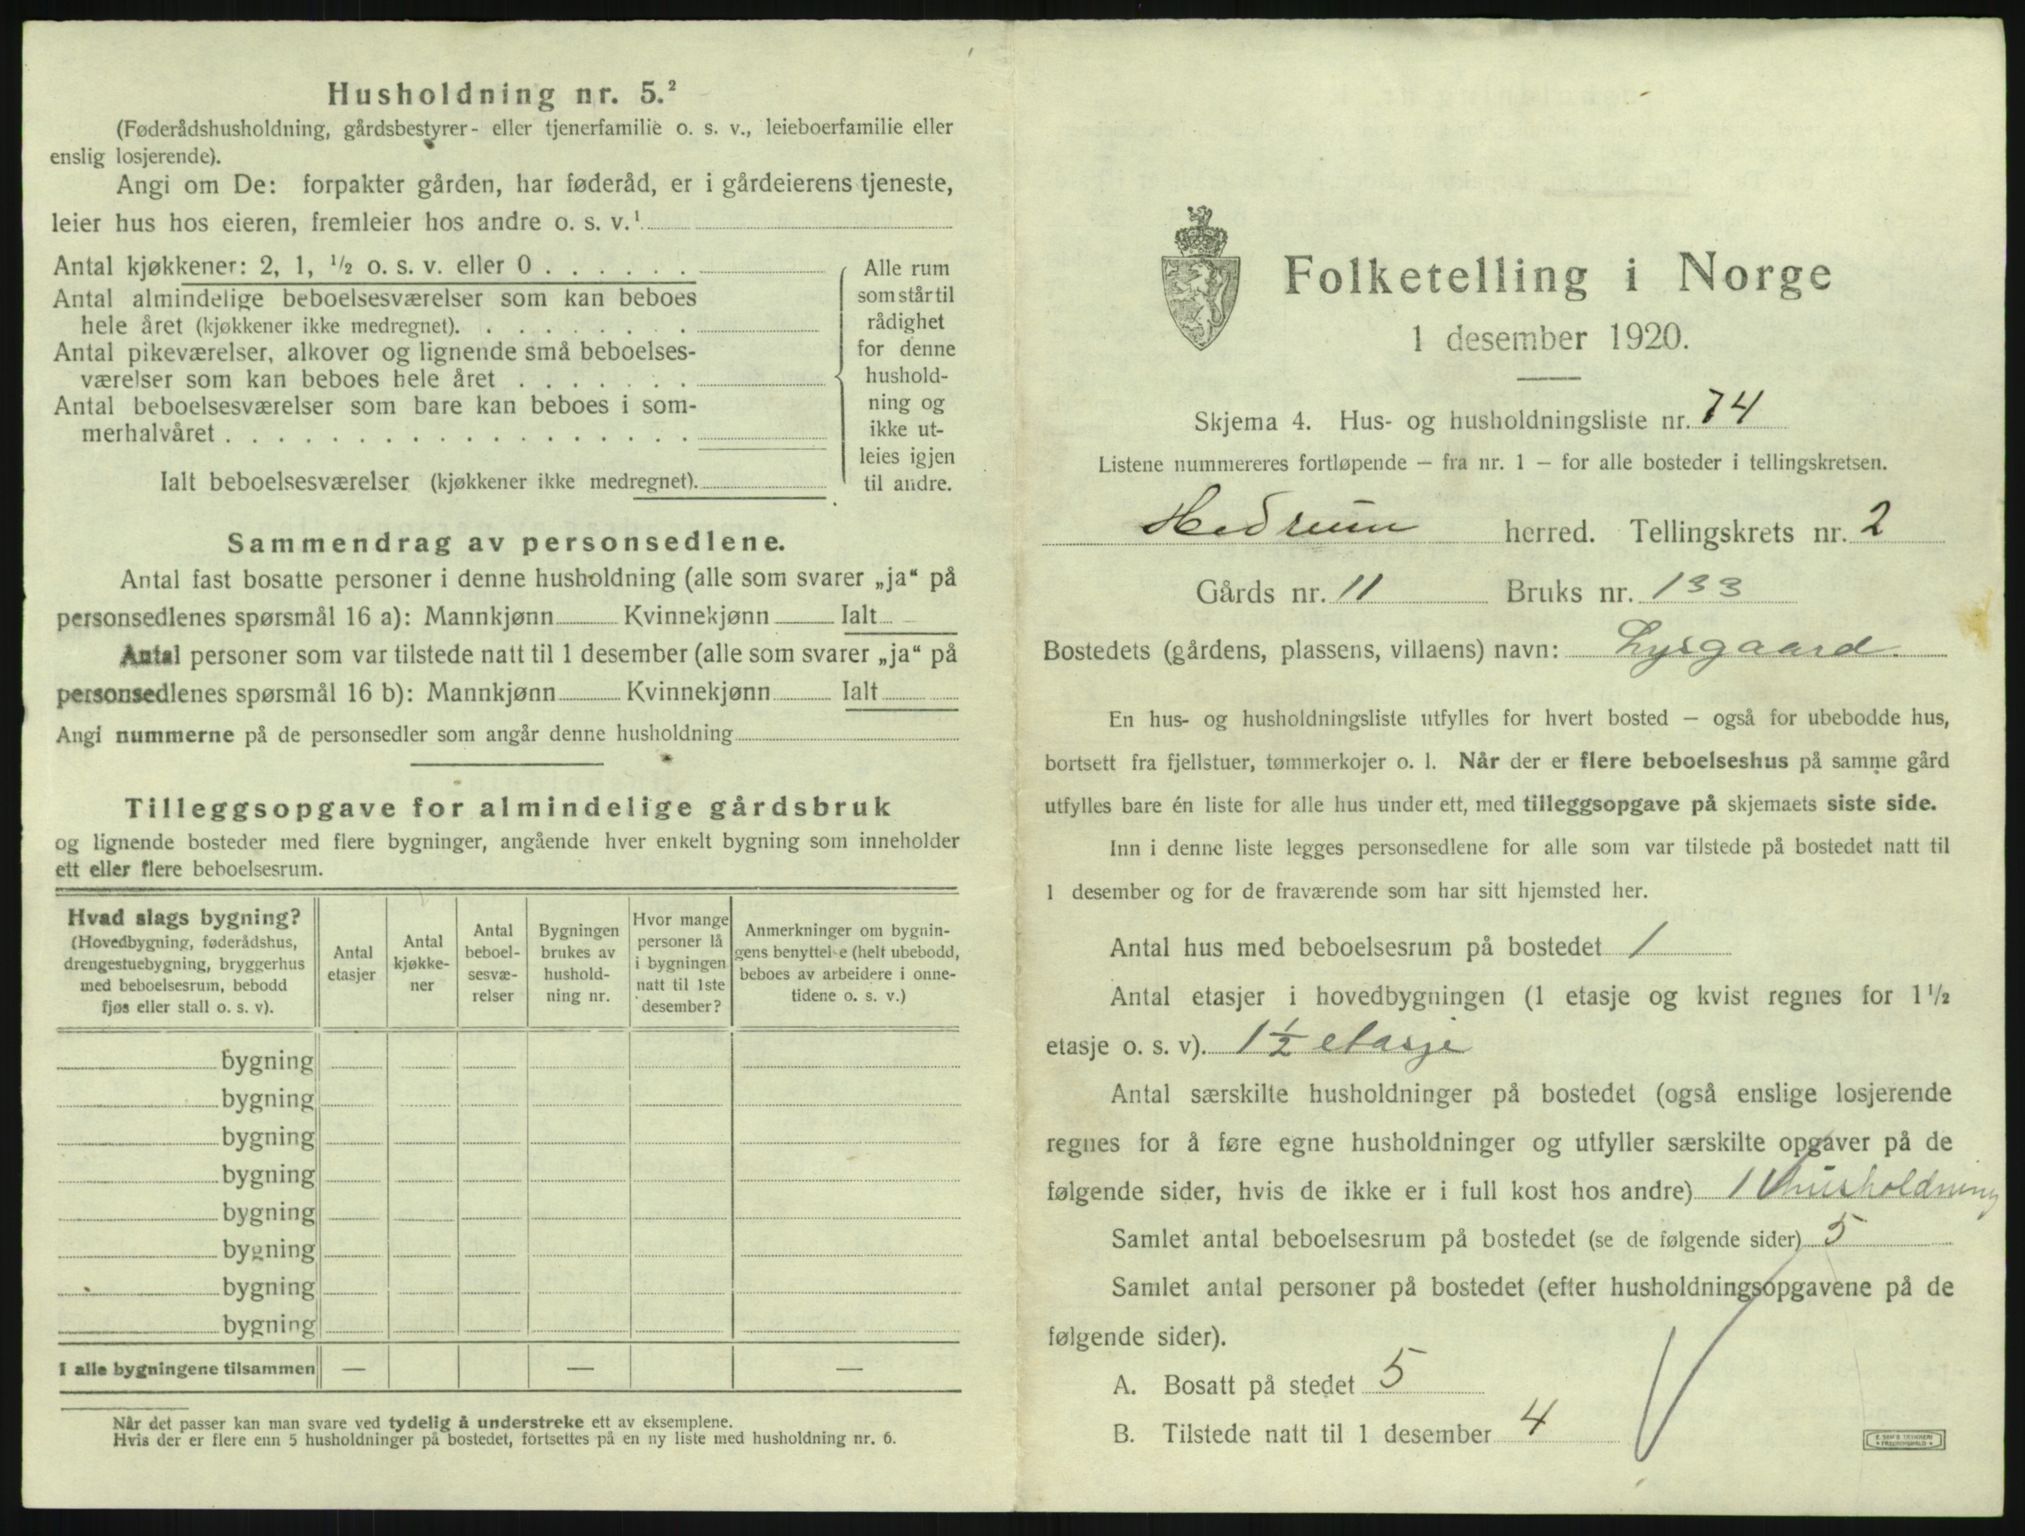 Husholdning nr. 5.²
(Føderådshusholdning, gårdsbestyrer- eller tjenerfamilie o. s. v., leieboerfamilie eller
enslig losjerende).
Angi om De: forpakter gården, har føderåd, er i gårdeierens tjeneste,
leier hus hos eieren, fremleier hos andre o. s. v.¹
Antal kjøkkener: 2, 1, ½ o. s. v. eller 0 . . . . . .
Antal almindelige beboelsesværelser som kan beboes
hele året (kjøkkener ikke medregnet). . . . . . . . .
Antal pikeværelser, alkover og lignende små beboelses-
værelser som kan beboes hele året . . . . . . .
Antal beboelsesværelser som bare kan beboes i som-
merhalvåret . . . . . . . . . . . . . . . . . .
Ialt beboelsesværelser (kjøkkener ikke medregnet).
Alle rum
som står til
rådighet
for denne
hushold-
ning og
ikke ut-
leies igjen
til andre.
Sammendrag av personsedlene.
Antal fast bosatte personer i denne husholdning (alle som svarer „ja“ på
personsedlenes spørsmål 16 a): Mannkjønn Kvinnekjønn Ialt
Antal personer som var tilstede natt til 1 desember (alle som svarer „ja“ på
personsedlenes spørsmål 16 b): Mannkjønn Kvinnekjønn Ialt
Angi nummerne på de personsedler som angår denne husholdning
Tilleggsopgave for almindelige gårdsbruk
og lignende bosteder med flere bygninger, angående hver enkelt bygning som inneholder
ett eller flere beboelsesrum.
Hvad slags bygning?
(Hovedbygning, føderådshus,
drengestuebygning, bryggerhus
med beboelsesrum, bebodd
fjøs eller stall o. s. v).
Antal
etasjer
Antal
kjøkke-
ner
Antal
beboel-
sesvæ-
relser
Bygningen
brukes av
hushold-
ning nr.
Hvor mange
personer lå
i bygningen
natt til 1ste
desember?
Anmerkninger om bygnin-
gens benyttelse (helt ubebodd,
beboes av arbeidere i onne-
tidene o. s. v.)
bygning
bygning
bygning
bygning
bygning
bygning
bygning
bygning
I alle bygningene tilsammen — — —
Når det passer kan man svare ved tydelig å understreke ett av eksemplene.
Hvis der er flere enn 5 husholdninger på bostedet, fortsettes på en ny liste med husholdning nr. 6.
Folketelling i Norge
1 desember 1920.
Skjema 4. Hus- og husholdningsliste nr. 74
Listene nummereres fortløpende — fra nr. 1 — for alle bosteder i tellingskretsen.
Hedrum herred. Tellingskrets nr. 2
Gårds nr. 11 Bruks nr. 133
Bostedets (gårdens, plassens, villaens) navn: Lysgaard.
En hus- og husholdningsliste utfylles for hvert bosted — også for ubebodde hus,
bortsett fra fjellstuer, tømmerkojer o. l. Når der er flere beboelseshus på samme gård
utfylles bare én liste for alle hus under ett, med tilleggsopgave på skjemaets siste side.
Inn i denne liste legges personsedlene for alle som var tilstede på bostedet natt til
1 desember og for de fraværende som har sitt hjemsted her.
Antal hus med beboelsesrum på bostedet 1
Antal etasjer i hovedbygningen (1 etasje og kvist regnes for 1½
etasje o. s. v). 1½ etasje
Antal særskilte husholdninger på bostedet (også enslige losjerende
regnes for å føre egne husholdninger og utfyller særskilte opgaver på de
følgende sider, hvis de ikke er i full kost hos andre) 1 husholdning
Samlet antal beboelsesrum på bostedet (se de følgende sider) 5
Samlet antal personer på bostedet (efter husholdningsopgavene på de
følgende sider).
A. Bosatt på stedet 5
B. Tilstede natt til 1 desember 4